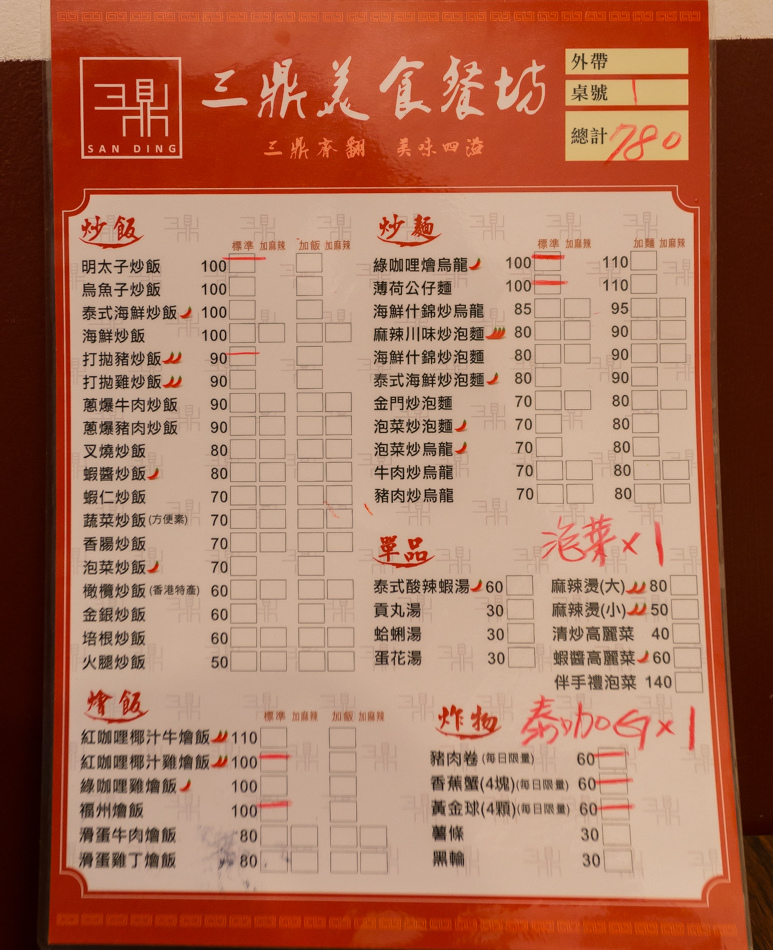 三鼎
SAN DING
三鼎美食餐坊
三鼎齊翻 美味四溢
外帶
桌號 1
總計 780
炒飯
標準 加麻辣 加飯 加麻辣
明太子炒飯 100
烏魚子炒飯 100
泰式海鮮炒飯 100
海鮮炒飯 100
打拋豬炒飯 90
打拋雞炒飯 90
蔥爆牛肉炒飯 90
蔥爆豬肉炒飯 90
叉燒炒飯 80
蝦醬炒飯 80
蝦仁炒飯 70
蔬菜炒飯(方便素) 70
香腸炒飯 70
泡菜炒飯 70
橄欖炒飯(香港特產) 60
金銀炒飯 60
培根炒飯 60
火腿炒飯 50
燴飯
標準 加麻辣 加飯 加麻辣
紅咖哩椰汁牛燴飯 110
紅咖哩椰汁雞燴飯 100
綠咖哩雞燴飯 100
福州燴飯 100
滑蛋牛肉燴飯 80
滑蛋雞丁燴飯 80
炒麵
標準 加麻辣 加麵 加麻辣
綠咖哩燴烏龍 100 110
薄荷公仔麵 100 110
海鮮什錦炒烏龍 85 95
麻辣川味炒泡麵 80 90
海鮮什錦炒泡麵 80 90
泰式海鮮炒泡麵 80 90
金門炒泡麵 70 80
泡菜炒泡麵 70 80
泡菜炒烏龍 70 80
牛肉炒烏龍 70 80
豬肉炒烏龍 70 80
單品
泡菜x1
泰式酸辣蝦湯 60 麻辣燙(大) 80
貢丸湯 30 麻辣燙(小) 50
蛤蜊湯 30 清炒高麗菜 40
蛋花湯 30 蝦醬高麗菜 60
伴手禮泡菜 140
炸物
x1
豬肉卷(每日限量) 60
香蕉蟹(4塊)(每日限量) 60
黃金球(4顆)(每日限量) 60
薯條 30
黑輪 30